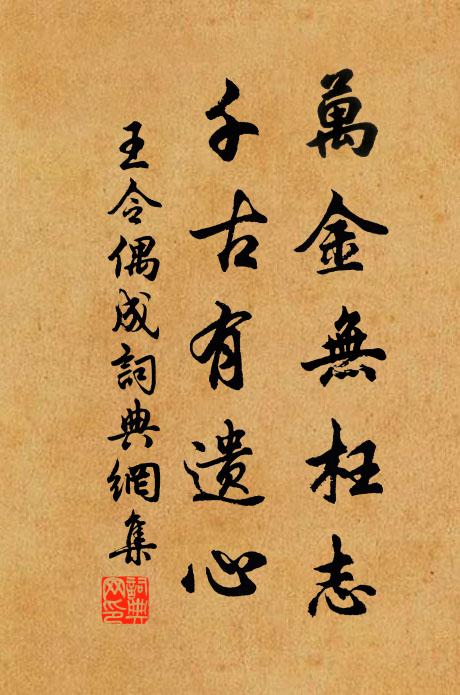 萬金無枉志
千古有遺心
王令偶成詞典網集
詞典網印